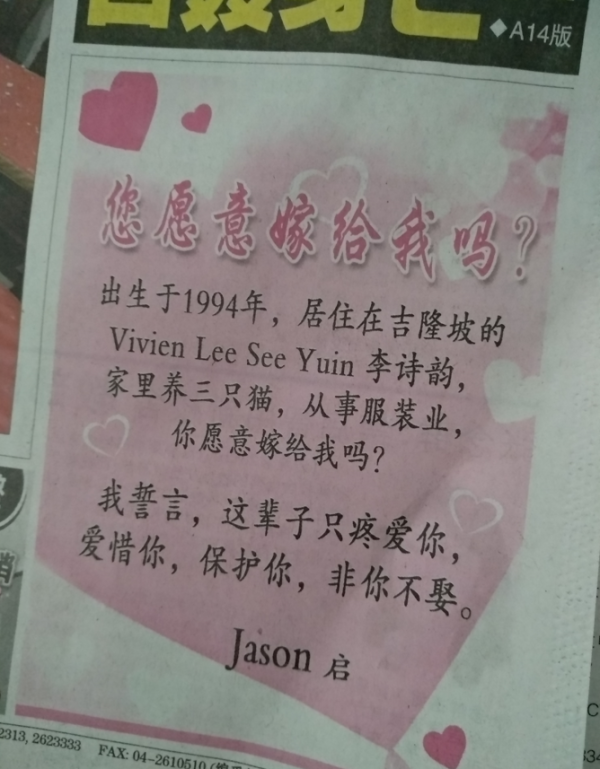 ◆A14版
您愿意嫁给我吗?
出生于1994年，居住在吉隆坡的
Vivien Lee See Yuin 李诗韵，
家里养三只猫，从事服装业，
你愿意嫁给我吗?
我誓言，这辈子只疼爱你，
爱惜你，保护你，非你不娶。
Jason 启
2313, 2623333 FAX: 04-2610510